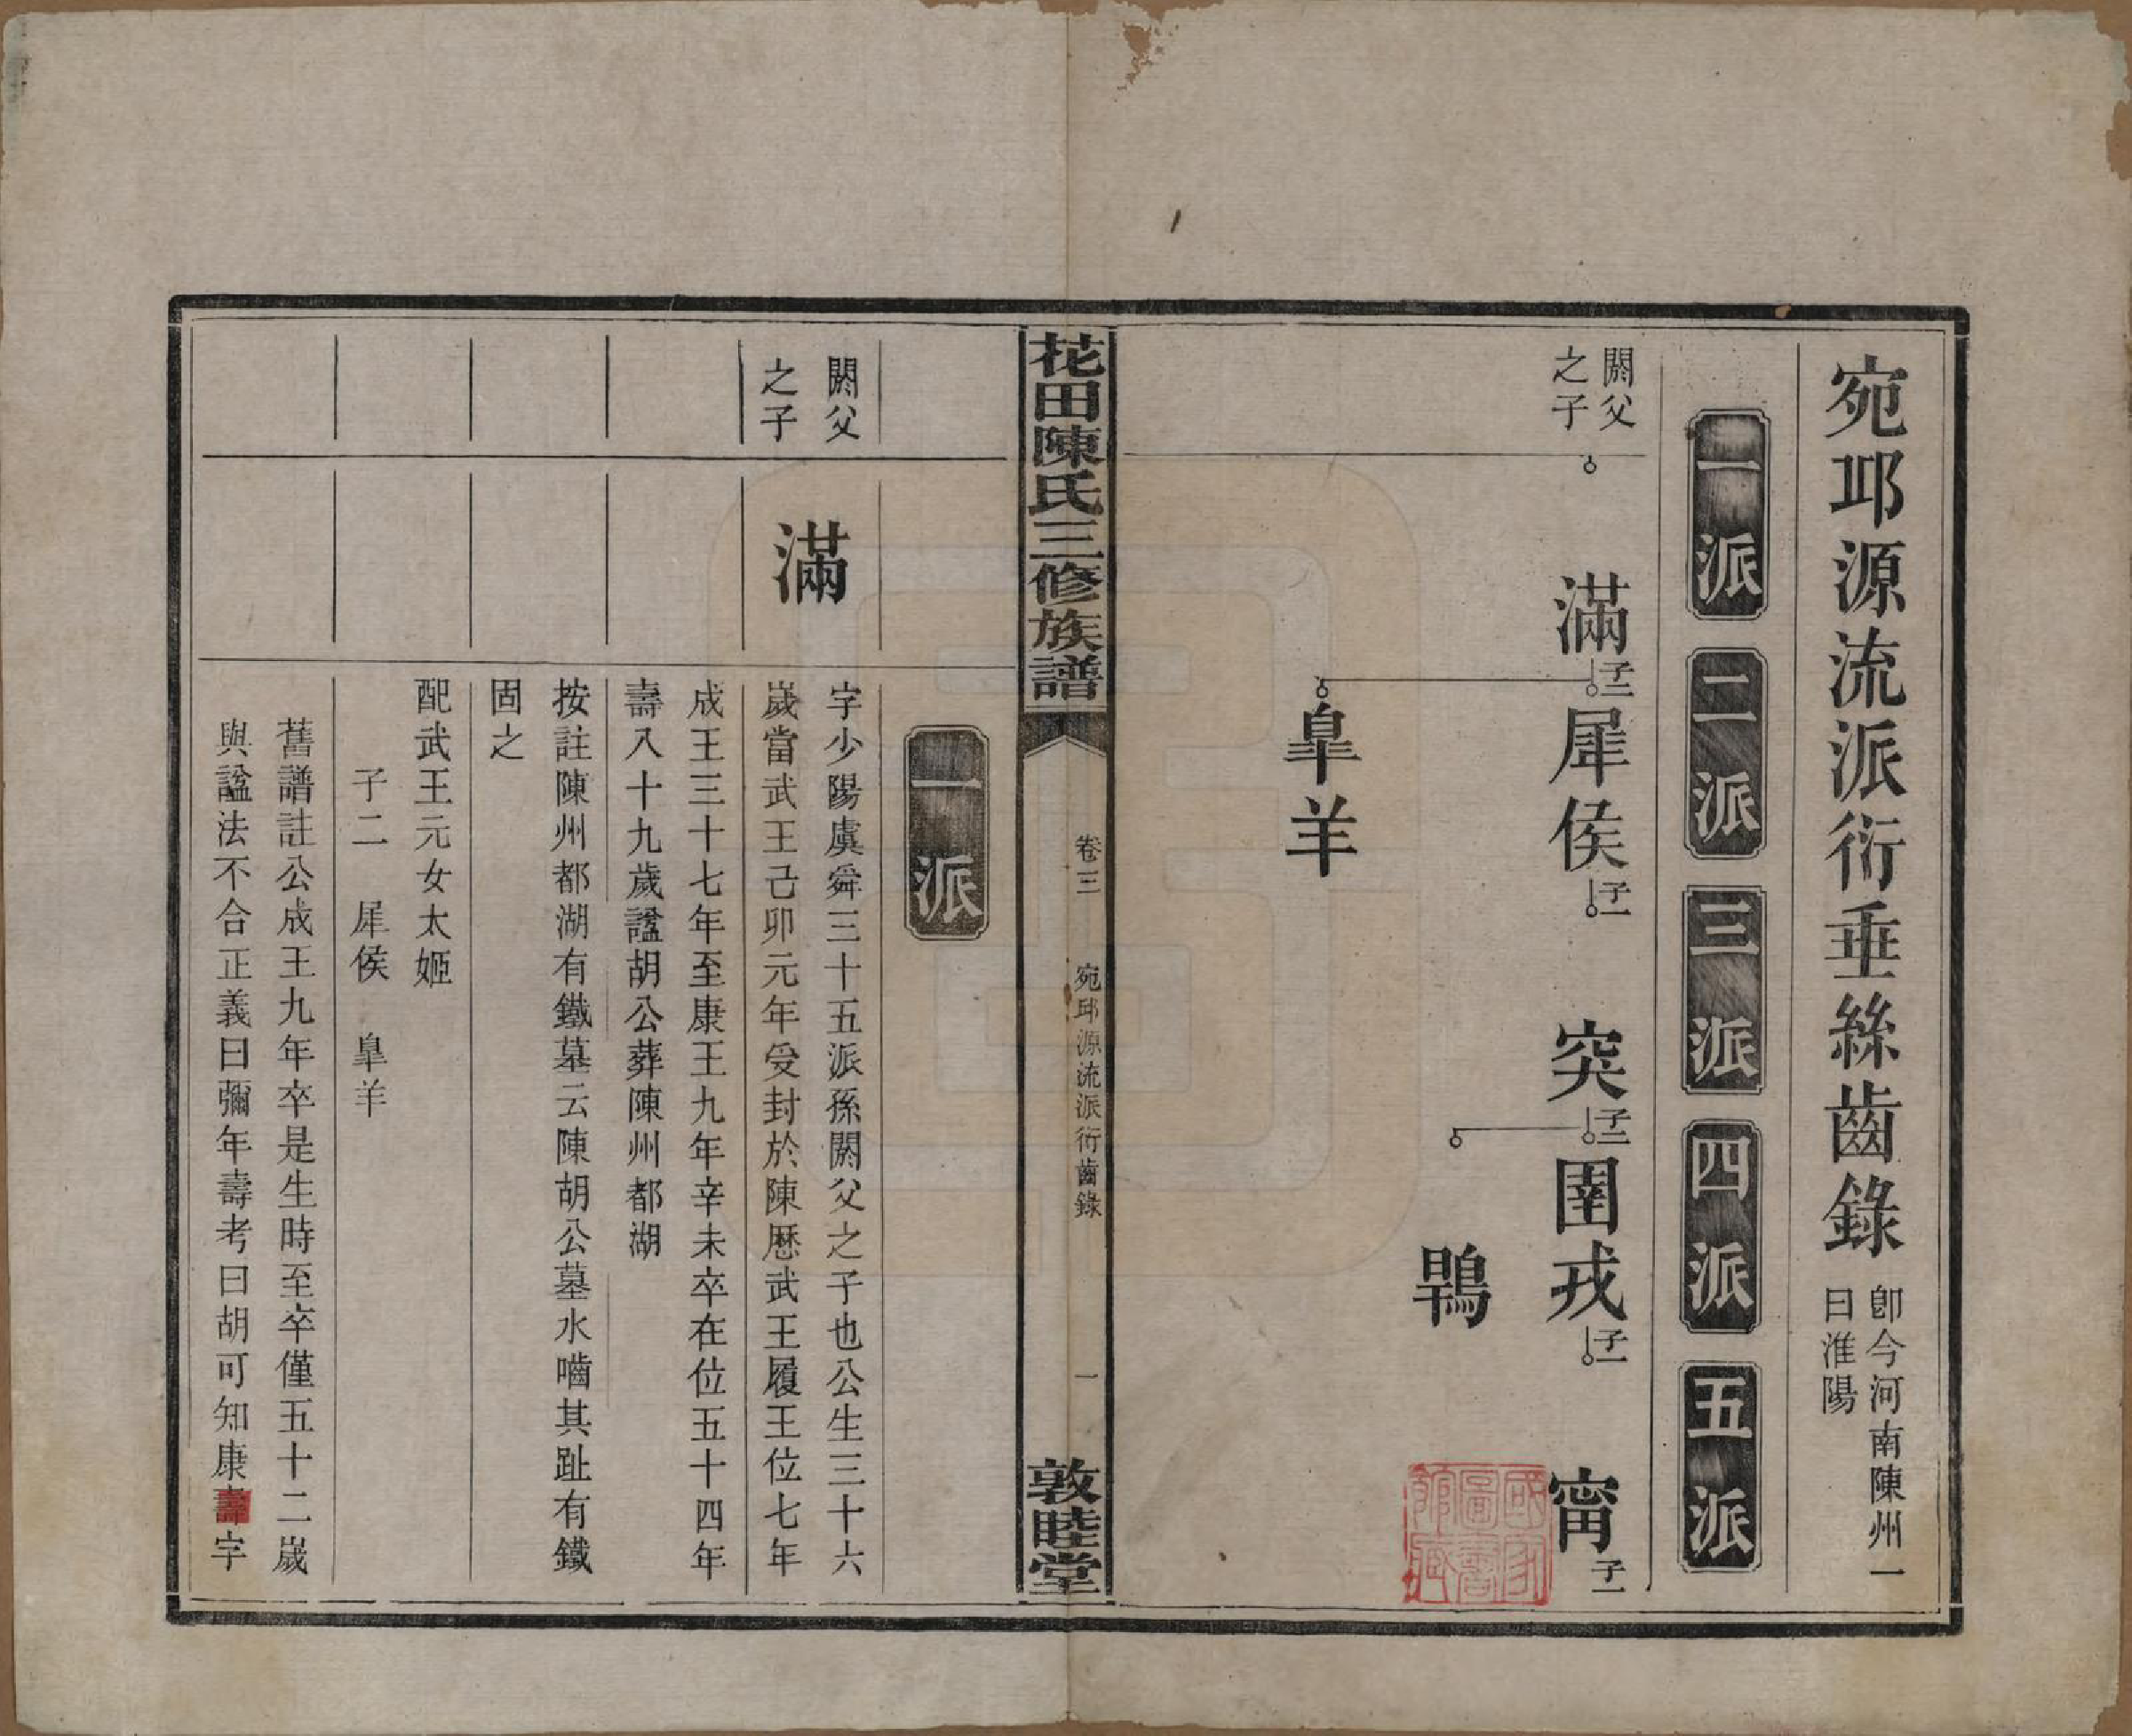 宛邛源流派衍垂絲齒錄
卽今河南陳州一
曰淮陽
一派
二派
三派
四派
五派
閼父
之子
滿
子二
犀侯
子一
突
子二
圉戎
子一
甯
子一
皐羊
鶤
國家圖書館藏
花田陳氏三修族譜
卷三
宛邱源流派衍齒錄
一
敦睦堂
一派
閼父
之子
滿
字少陽虞舜三十五派孫閼父之子也公生三十六
嵗當武王己卯元年受封於陳歷武王履王位七年
成王三十七年至康王九年辛未卒在位五十四年
壽八十九歲諡胡公葬陳州都湖
按註陳州都湖有鐵墓云陳胡公墓水嚙其趾有鐵
固之
配武王元女太姬
子二 犀侯 皐羊
舊譜註公成王九年卒是生時至卒僅五十二嵗
與諡法不合正義曰彌年壽考曰胡可知康壽字